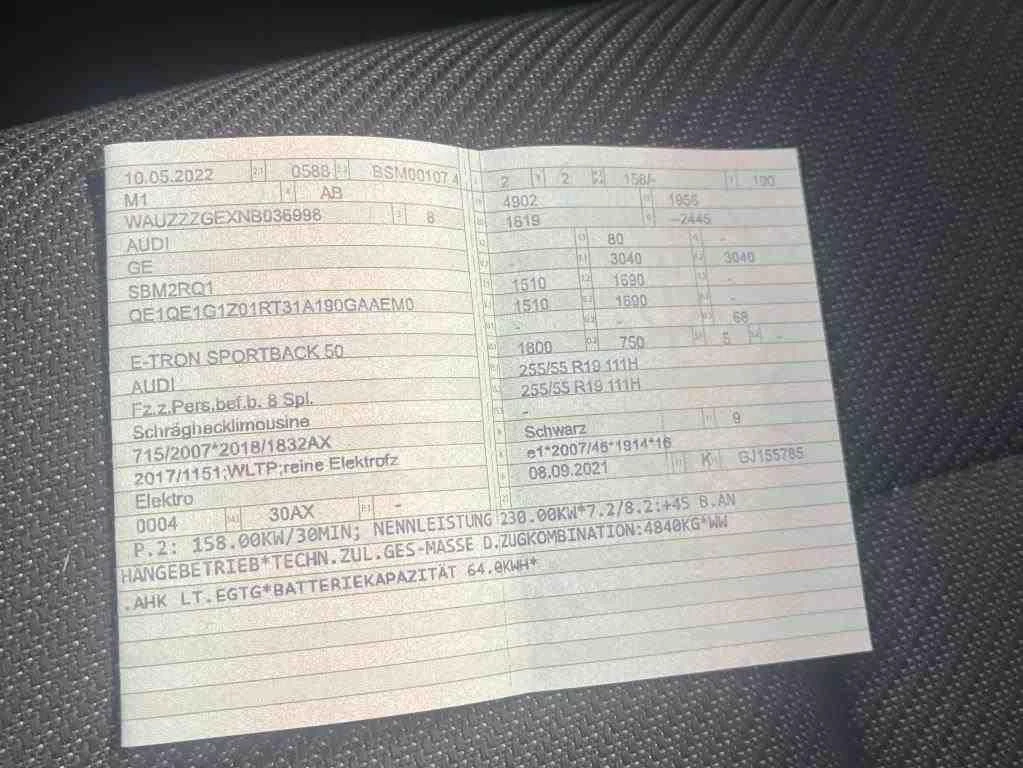 10.05.2022 0588 BSM00107 4
M1 4 AB
WAUZZZGEXNB036998 3 8
AUDI
GE
SBM2RQ1
QE1QE1G1Z01RT31A190GAAEM0
E-TRON SPORTBACK 50
AUDI
Fz.z.Pers.bef.b. 8 Spl.
Schräghecklimousine
715/2007*2018/1832AX
2017/1151;WLTP;reine Elektrofz
Elektro
0004 30AX -
2 2 158/- 190
4902 1956
1619 –2445
80 -
- 3040 3040
1510 1690 -
1510 1690 -
- - 68
1800 750 5 -
255/55 R19 111H
255/55 R19 111H
-
Schwarz 9
e1*2007/46*1914*16
08.09.2021 K GJ155785
P.2: 158.00KW/30MIN; NENNLEISTUNG 230.00KW*7.2/8.2:+45 B.AN
HÄNGEBETRIEB*TECHN.ZUL.GES-MASSE D.ZUGKOMBINATION:4840KG*WW
.AHK LT.EGTG*BATTERIEKAPAZITÄT 64.0KWH*